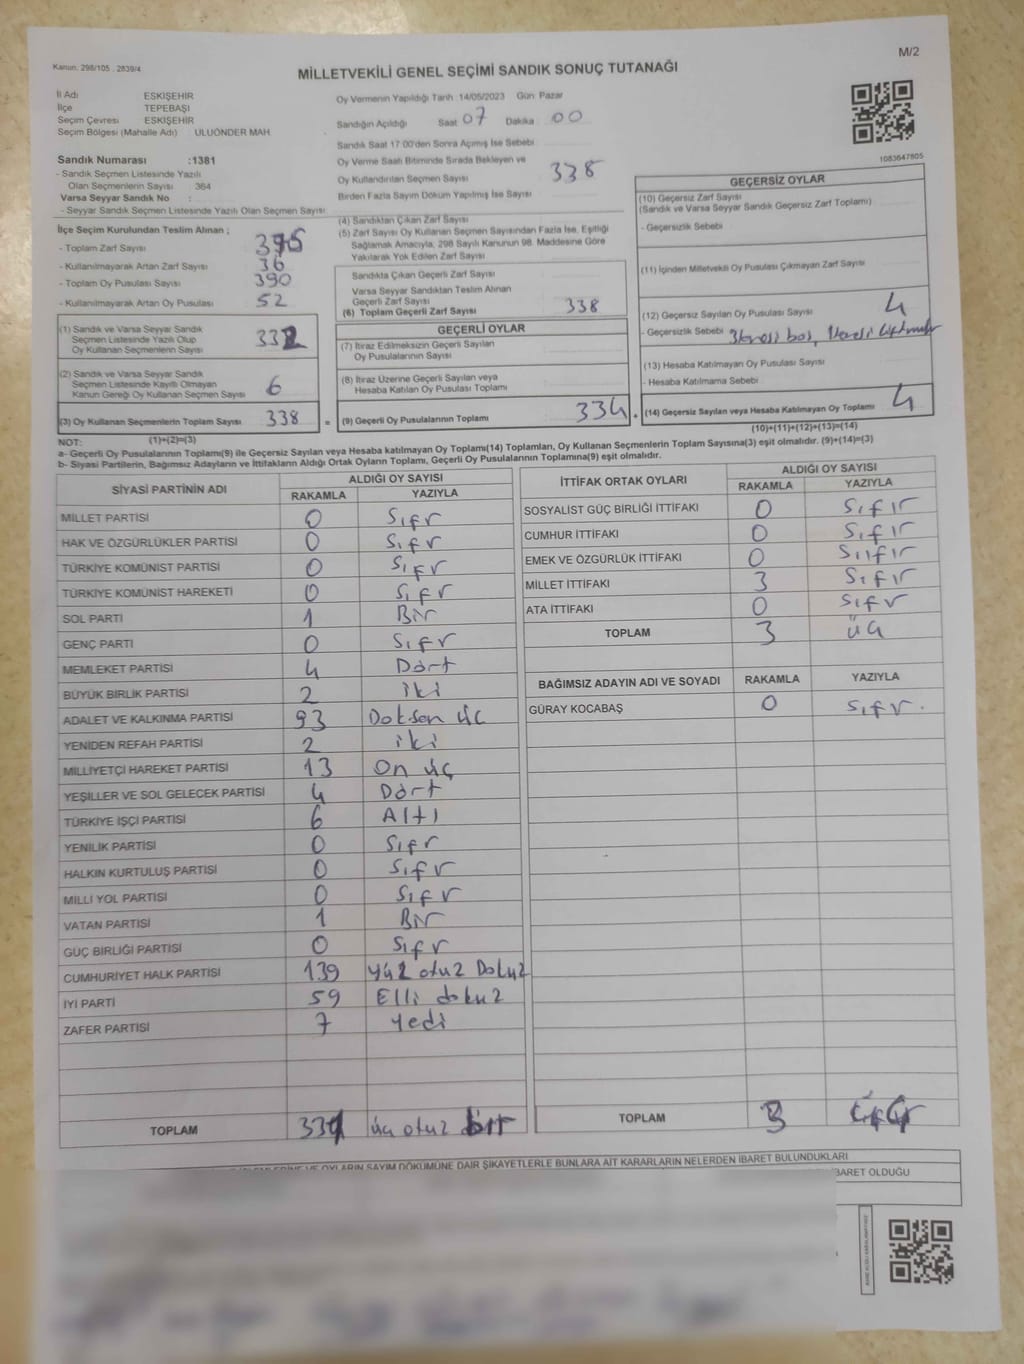 M/2
Kanun. 298/105 . 2839/4
MİLLETVEKİLİ GENEL SEÇİMİ SANDIK SONUÇ TUTANAĞI
İl Adı ESKİŞEHİR
İlçe TEPEBAŞI
Seçim Çevresi ESKİŞEHİR
Seçim Bölgesi (Mahalle Adı) ULUÖNDER MAH
Sandık Numarası :1381
- Sandık Seçmen Listesinde Yazılı
Olan Seçmenlerin Sayısı 364
Varsa Seyyar Sandık No :
- Seyyar Sandık Seçmen Listesinde Yazılı Olan Seçmen Sayısı
İlçe Seçim Kurulundan Teslim Alınan ;
- Toplam Zarf Sayısı 395
- Kullanılmayarak Artan Zarf Sayısı 36
- Toplam Oy Pusulası Sayısı 390
- Kullanılmayarak Artan Oy Pusulası 52
(1) Sandık ve Varsa Seyyar Sandık
Seçmen Listesinde Yazılı Olup
Oy Kullanan Seçmenlerin Sayısı 332
(2) Sandık ve Varsa Seyyar Sandık
Seçmen Listesinde Kayıtlı Olmayan
Kanun Gereği Oy Kullanan Seçmen Sayısı 6
(3) Oy Kullanan Seçmenlerin Toplam Sayısı 338
(1)+(2)=(3)
Oy Vermenin Yapıldığı Tarih :14/05/2023 Gün: Pazar
Sandığın Açıldığı Saat 07 Dakika 00
Sandık Saat 17:00'den Sonra Açılmış İse Sebebi
Oy Verme Saati Bitiminde Sırada Bekleyen ve
Oy Kullandırılan Seçmen Sayısı 338
Birden Fazla Sayım Döküm Yapılmış İse Sayısı
(4) Sandıktan Çıkan Zarf Sayısı
(5) Zarf Sayısı Oy Kullanan Seçmen Sayısından Fazla İse, Eşitliği
Sağlamak Amacıyla, 298 Sayılı Kanunun 98. Maddesine Göre
Yakılarak Yok Edilen Zarf Sayısı
Sandıkta Çıkan Geçerli Zarf Sayısı
Varsa Seyyar Sandıktan Teslim Alınan
Geçerli Zarf Sayısı
(6) Toplam Geçerli Zarf Sayısı 338
GEÇERLİ OYLAR
(7) İtiraz Edilmeksizin Geçerli Sayılan
Oy Pusulalarının Sayısı
(8) İtiraz Üzerine Geçerli Sayılan veya
Hesaba Katılan Oy Pusulası Toplamı
= (9) Geçerli Oy Pusulalarının Toplamı 334 +
1083647805
GEÇERSİZ OYLAR
(10) Geçersiz Zarf Sayısı
(Sandık ve Varsa Seyyar Sandık Geçersiz Zarf Toplamı)
- Geçersizlik Sebebi
(11) İçinden Milletvekili Oy Pusulası Çıkmayan Zarf Sayısı
(12) Geçersiz Sayılan Oy Pusulası Sayısı 4
- Geçersizlik Sebebi
(13) Hesaba Katılmayan Oy Pusulası Sayısı
- Hesaba Katılmama Sebebi
(14) Geçersiz Sayılan veya Hesaba Katılmayan Oy Toplamı 4
(10)+(11)+(12)+(13)=(14)
NOT:
a- Geçerli Oy Pusulalarının Toplamı(9) ile Geçersiz Sayılan veya Hesaba katılmayan Oy Toplamı(14) Toplamları, Oy Kullanan Seçmenlerin Toplam Sayısına(3) eşit olmalıdır. (9)+(14)=(3)
b- Siyasi Partilerin, Bağımsız Adayların ve İttifakların Aldığı Ortak Oyların Toplamı, Geçerli Oy Pusulalarının Toplamına(9) eşit olmalıdır.
SİYASİ PARTİNİN ADI ALDIĞI OY SAYISI
RAKAMLA YAZIYLA
MİLLET PARTİSİ 0 Sıfr
HAK VE ÖZGÜRLÜKLER PARTİSİ 0 Sıfr
TÜRKİYE KOMÜNİST PARTİSİ 0 Sıfr
TÜRKİYE KOMÜNİST HAREKETİ 0 Sıfr
SOL PARTİ 1 Bir
GENÇ PARTİ 0 Sıfr
MEMLEKET PARTİSİ 4 Dört
BÜYÜK BİRLİK PARTİSİ 2 iki
ADALET VE KALKINMA PARTİSİ 93 Doksan üç
YENİDEN REFAH PARTİSİ 2 iki
MİLLİYETÇİ HAREKET PARTİSİ 13 On üç
YEŞİLLER VE SOL GELECEK PARTİSİ 4 Dört
TÜRKİYE İŞÇİ PARTİSİ 6 Altı
YENİLİK PARTİSİ 0 Sıfr
HALKIN KURTULUŞ PARTİSİ 0 Sıfr
MİLLİ YOL PARTİSİ 0 Sıfr
VATAN PARTİSİ 1 Bir
GÜÇ BİRLİĞİ PARTİSİ 0 Sıfr
CUMHURİYET HALK PARTİSİ 139 Yüz otuz Dokuz
İYİ PARTİ 59 Elli dokuz
ZAFER PARTİSİ 7 Yedi
TOPLAM 331 üç otuz bir
İTTİFAK ORTAK OYLARI ALDIĞI OY SAYISI
RAKAMLA YAZIYLA
SOSYALİST GÜÇ BİRLİĞİ İTTİFAKI 0 Sıfır
CUMHUR İTTİFAKI 0 Sıfır
EMEK VE ÖZGÜRLÜK İTTİFAKI 0 Sııfır
MİLLET İTTİFAKI 3 Sıfır
ATA İTTİFAKI 0 Sıfır
TOPLAM 3 üç
BAĞIMSIZ ADAYIN ADI VE SOYADI RAKAMLA YAZIYLA
GÜRAY KOCABAŞ 0 Sıfır.
TOPLAM 3
OYLARIN SAYIM DÖKÜMÜNE DAİR ŞİKAYETLERLE BUNLARA AİT KARARLARIN NELERDEN İBARET BULUNDUKLARI
İBARET OLDUĞU